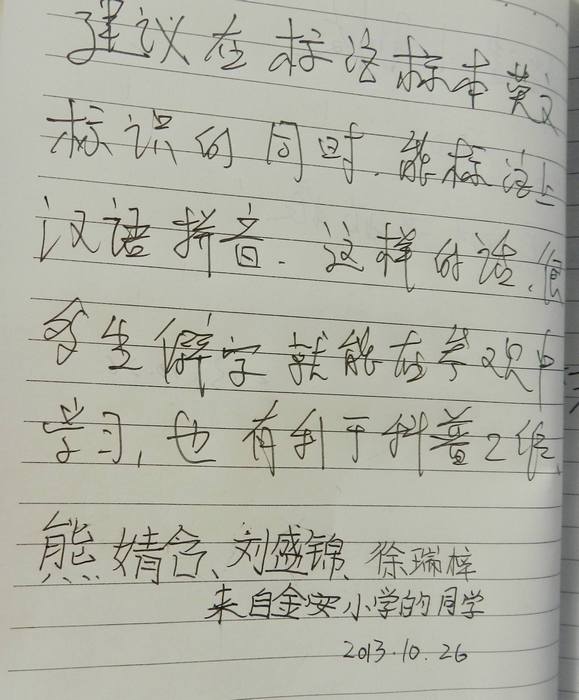 建议在标注标本英文
标识的同时,能标注上
汉语拼音.这样的话,很
多生僻字就能在参观中
学习,也有利于科普工作.
熊婧含、刘盛锦、徐瑞梓
来自金安小学的同学
2013.10.26